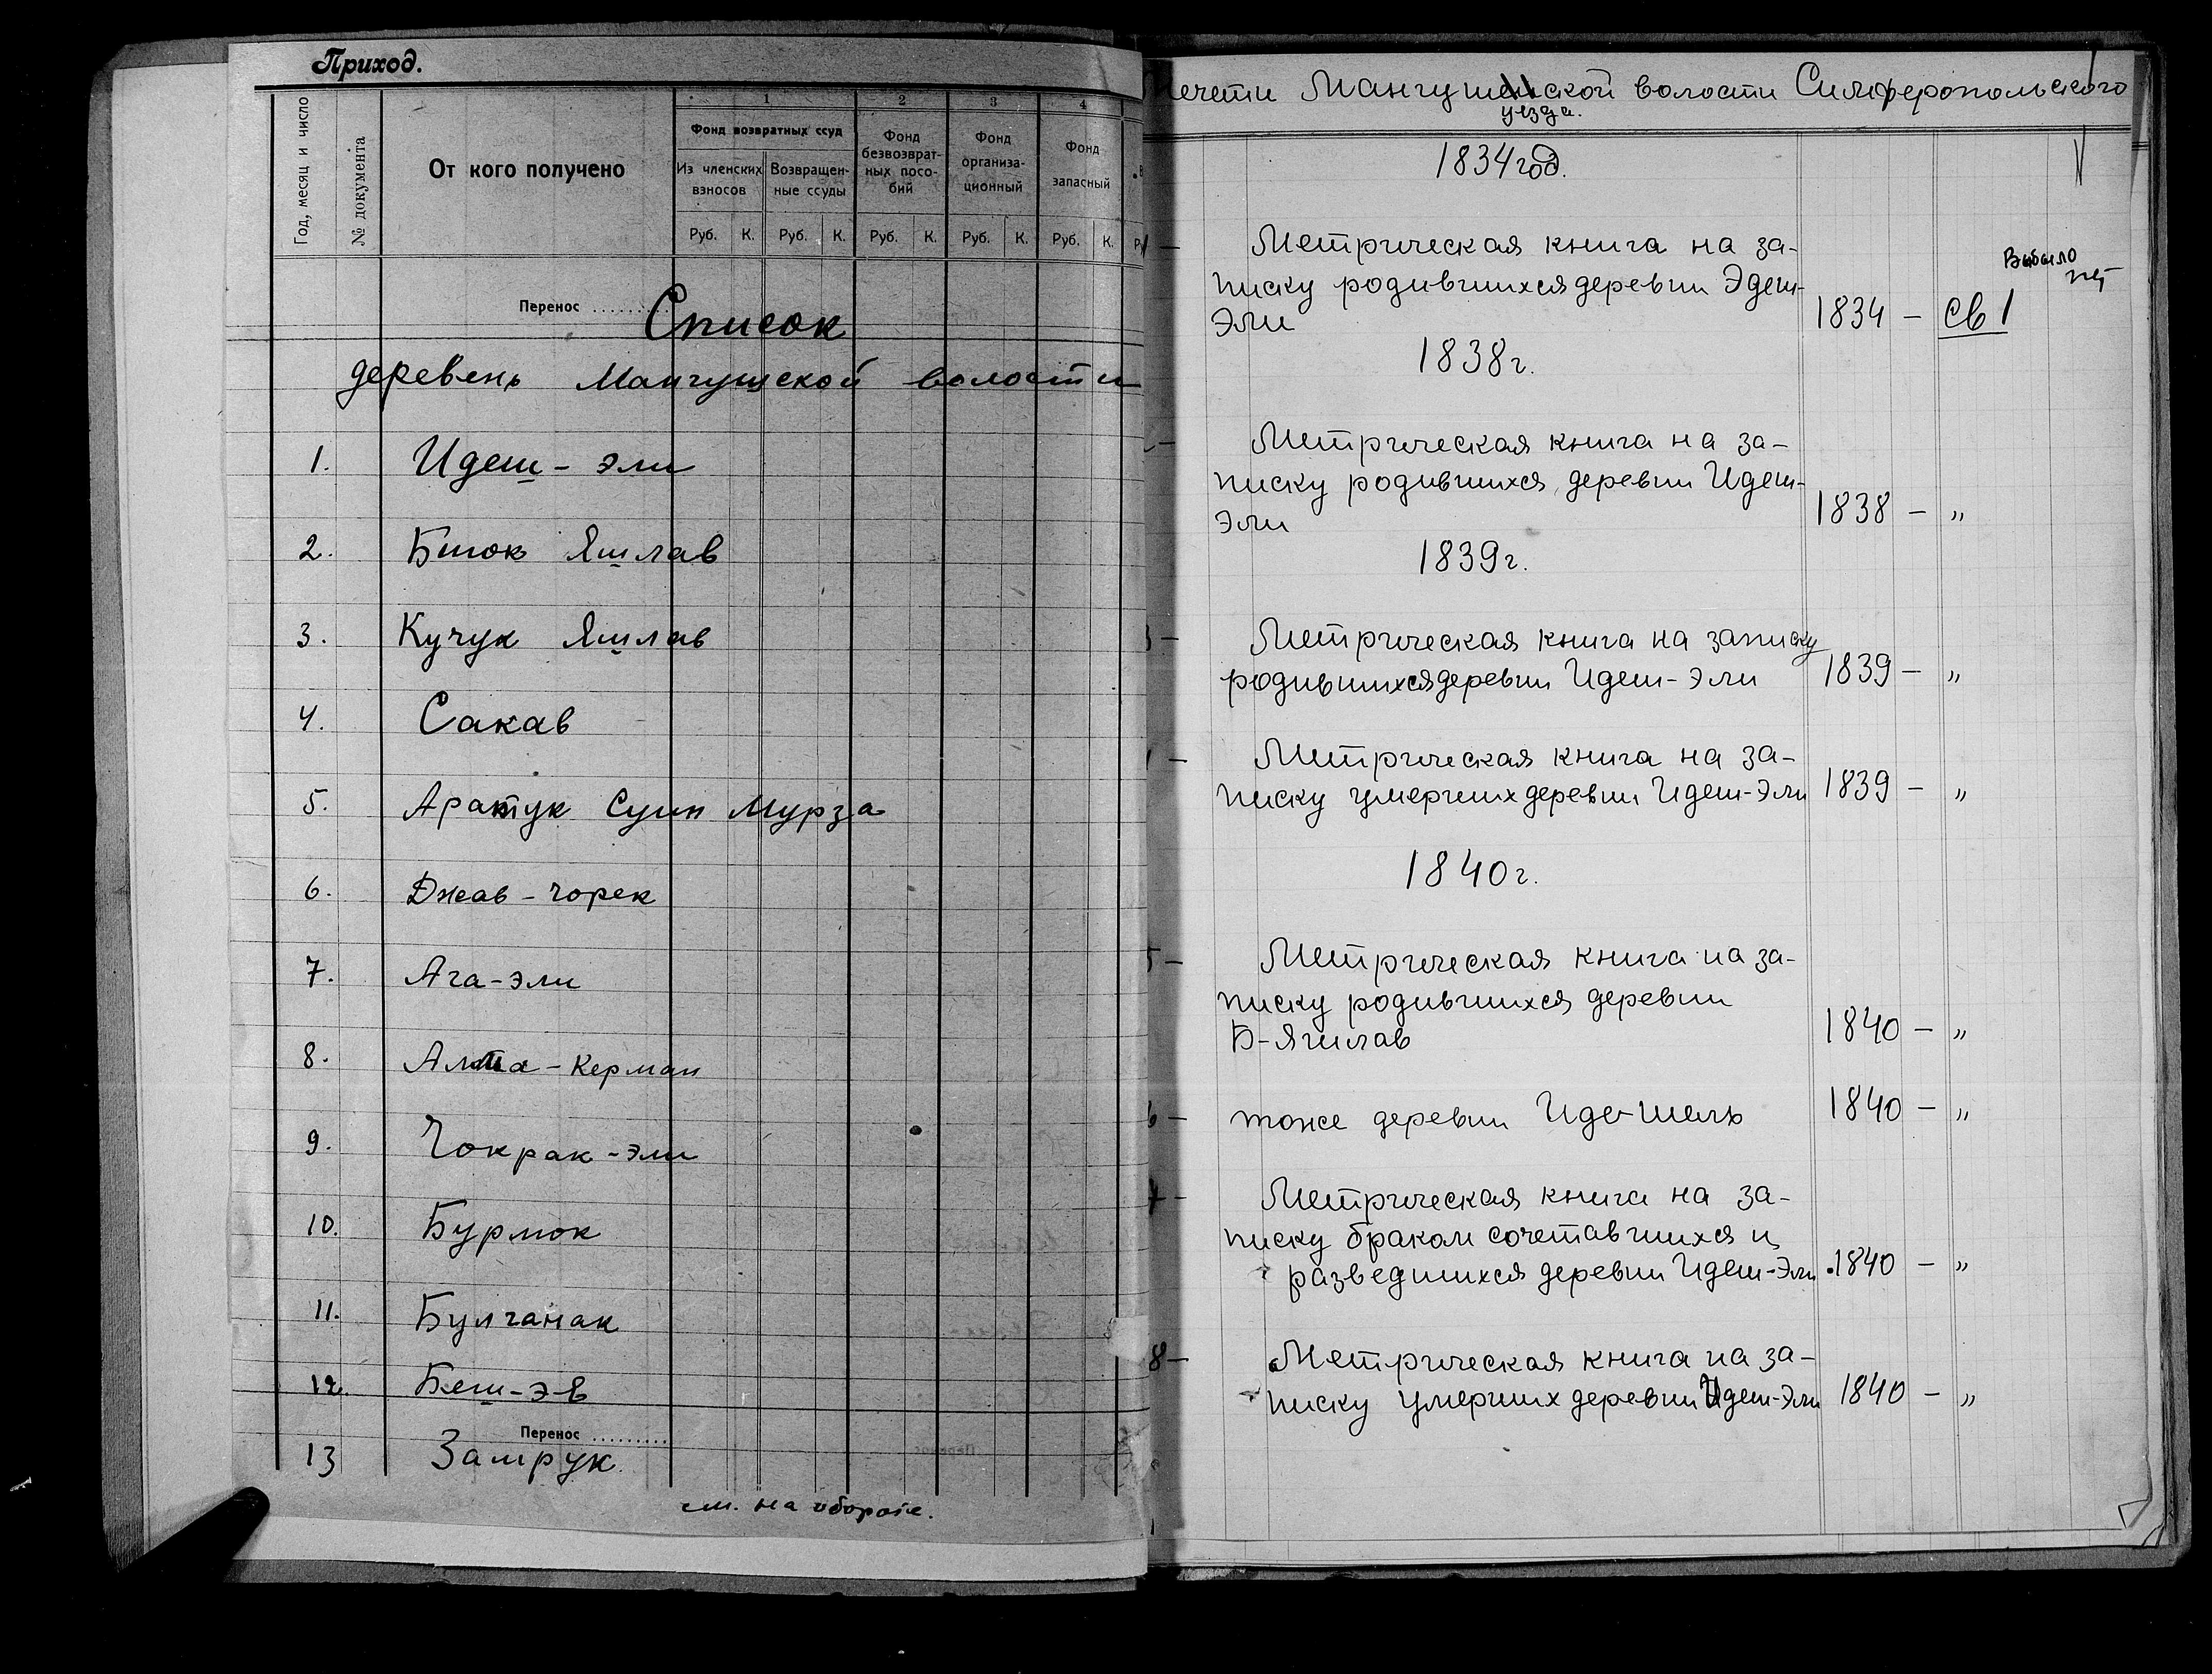 Приход.
Год, месяц и число
№ документа
От кого получено
1
2
3
4
Фонд возвратных ссуд
Из членских взносов
Возвращен-
ные ссуды
Фонд
безвозврат-
ных посо-
бий
Фонд
организа-
ционный
Фонд
запасный
Руб. К. Руб. К. Руб. К. Руб. К. Руб. К.
Перенос ..........
Список
деревень Мангушской волости
1. Идеш - эли
2. Биюк Яшлав
3. Кучук Яшлав
4. Сакав
5. Аратук Суин Мурза
6. Джав - чорек
7. Ага-эли
8. Алма - Керман
9. Чокрак - эли
10. Бурлюк
11. Булганак
12. Беш-э-в
Перенос ..........
13 Замрук
см. на обороте.
мечети Мангушской волости Симферопольского
уезда.
1834 год.
Метрическая книга на за-
писку родившихся деревни Эдеш-
Эли 1834 - св 1
Выбыло
нет
1838г.
Метрическая книга на за-
писку родившихся деревни Идеш-
Эли 1838 - "
1839г.
3 - Метрическая книга на записку
родившихся деревни Идеш-Эли 1839 - "
Метрическая книга на за-
писку умерших деревни Идеш-Эли 1839 - "
1840г.
5 - Метрическая книга на за-
писку родившихся деревни
Б-Яшлав 1840 - "
6 - тоже деревни Иде-шель 1840 - "
7 - Метрическая книга на за-
писку браком сочетавшихся и
разведшихся деревни Идеш-Эли 1840 - "
8 - Метрическая книга на за-
писку умерших деревни Идеш-Эли 1840 - "